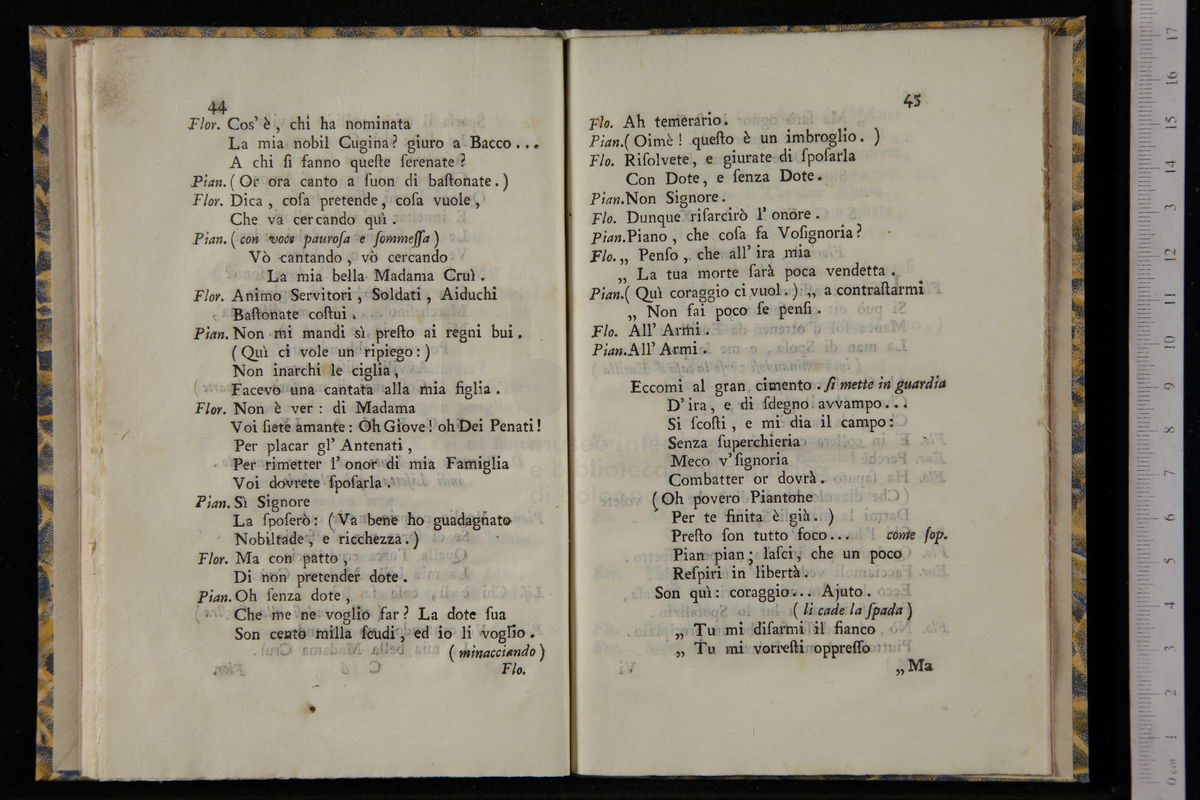 44
Flor. Cos' è, chi ha nominata
La mia nobil Cugina? giuro a Bacco...
A chi ſi fanno queſte ſerenate?
Pian. (Or ora canto a ſuon di baſtonate.)
Flor. Dica, coſa pretende, coſa vuole,
Che va cercando quì.
Pian. (con voce pauroſa e ſommeſſa)
Vò cantando, vò cercando
La mia bella Madama Cruì.
Flor. Animo Servitori, Soldati, Aiduchi
Baſtonate coſtui.
Pian. Non mi mandi sì preſto ai regni bui.
(Quì ci vole un ripiego:)
Non inarchi le ciglia,
Facevo una cantata alla mia figlia.
Flor. Non è ver: di Madama
Voi ſiete amante: Oh Giove! oh Dei Penati!
Per placar gl' Antenati,
Per rimetter l' onor di mia Famiglia
Voi dovrete ſpoſarla.
Pian. Sì Signore
La ſpoſerò: (Va bene ho guadagnato
Nobiltade, e ricchezza.)
Flor. Ma con patto,
Di non pretender dote.
Pian. Oh ſenza dote,
Che me ne voglio far? La dote ſua
Son cento milla ſcudi, ed io li voglio.
(minacciando)
Flo.
45
Flo. Ah temerario.
Pian. (Oimè! queſto è un imbroglio.)
Flo. Riſolvete, e giurate di ſpoſarla
Con Dote, e ſenza Dote.
Pian. Non Signore.
Flo. Dunque riſarcirò l' onore.
Pian. Piano, che coſa fa Voſignoria?
Flo. „ Penſo, che all' ira mia
„ La tua morte ſarà poca vendetta.
Pian. (Quì coraggio ci vuol.) „ a contraſtarmi
„ Non fai poco ſe penſi.
Flo. All' Armi.
Pian. All' Armi.
Eccomi al gran cimento. ſi mette in guardia
D' ira, e di ſdegno avvampo...
Si ſcoſti, e mi dia il campo:
Senza ſuperchieria
Meco v' ſignoria
Combatter or dovrà.
(Oh povero Piantone
Per te finita è già.)
Preſto ſon tutto foco... come ſop.
Pian pian; laſci, che un poco
Reſpiri in libertà.
Son quì: coraggio... Ajuto.
(li cade la ſpada)
„ Tu mi diſarmi il fianco
„ Tu mi vorreſti oppreſſo
„ Ma